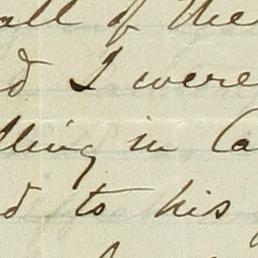 all of the
d I were
lling in Ca
d to his